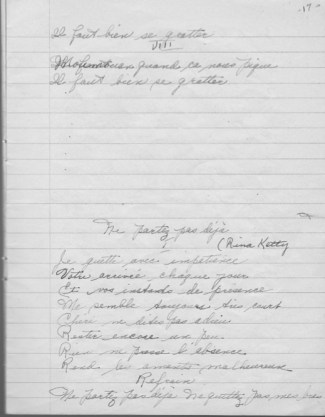 - 17 -
Il faut bien se gratter
VIII
quand ca nous pique
Il faut bien se gratter
Ne partez pas déjà
(Rina Ketty
I
Je guette avec impatience
Votre arrivée chaque jour
Et vos instants de présence
Me semble toujours très court
Chéri ne dites pas adieu
Rester encore un peu
Rien ne presse l'absence
Rends les amants malheureux
Refrain
Ne partez pas déjà Ne quittez pas mes